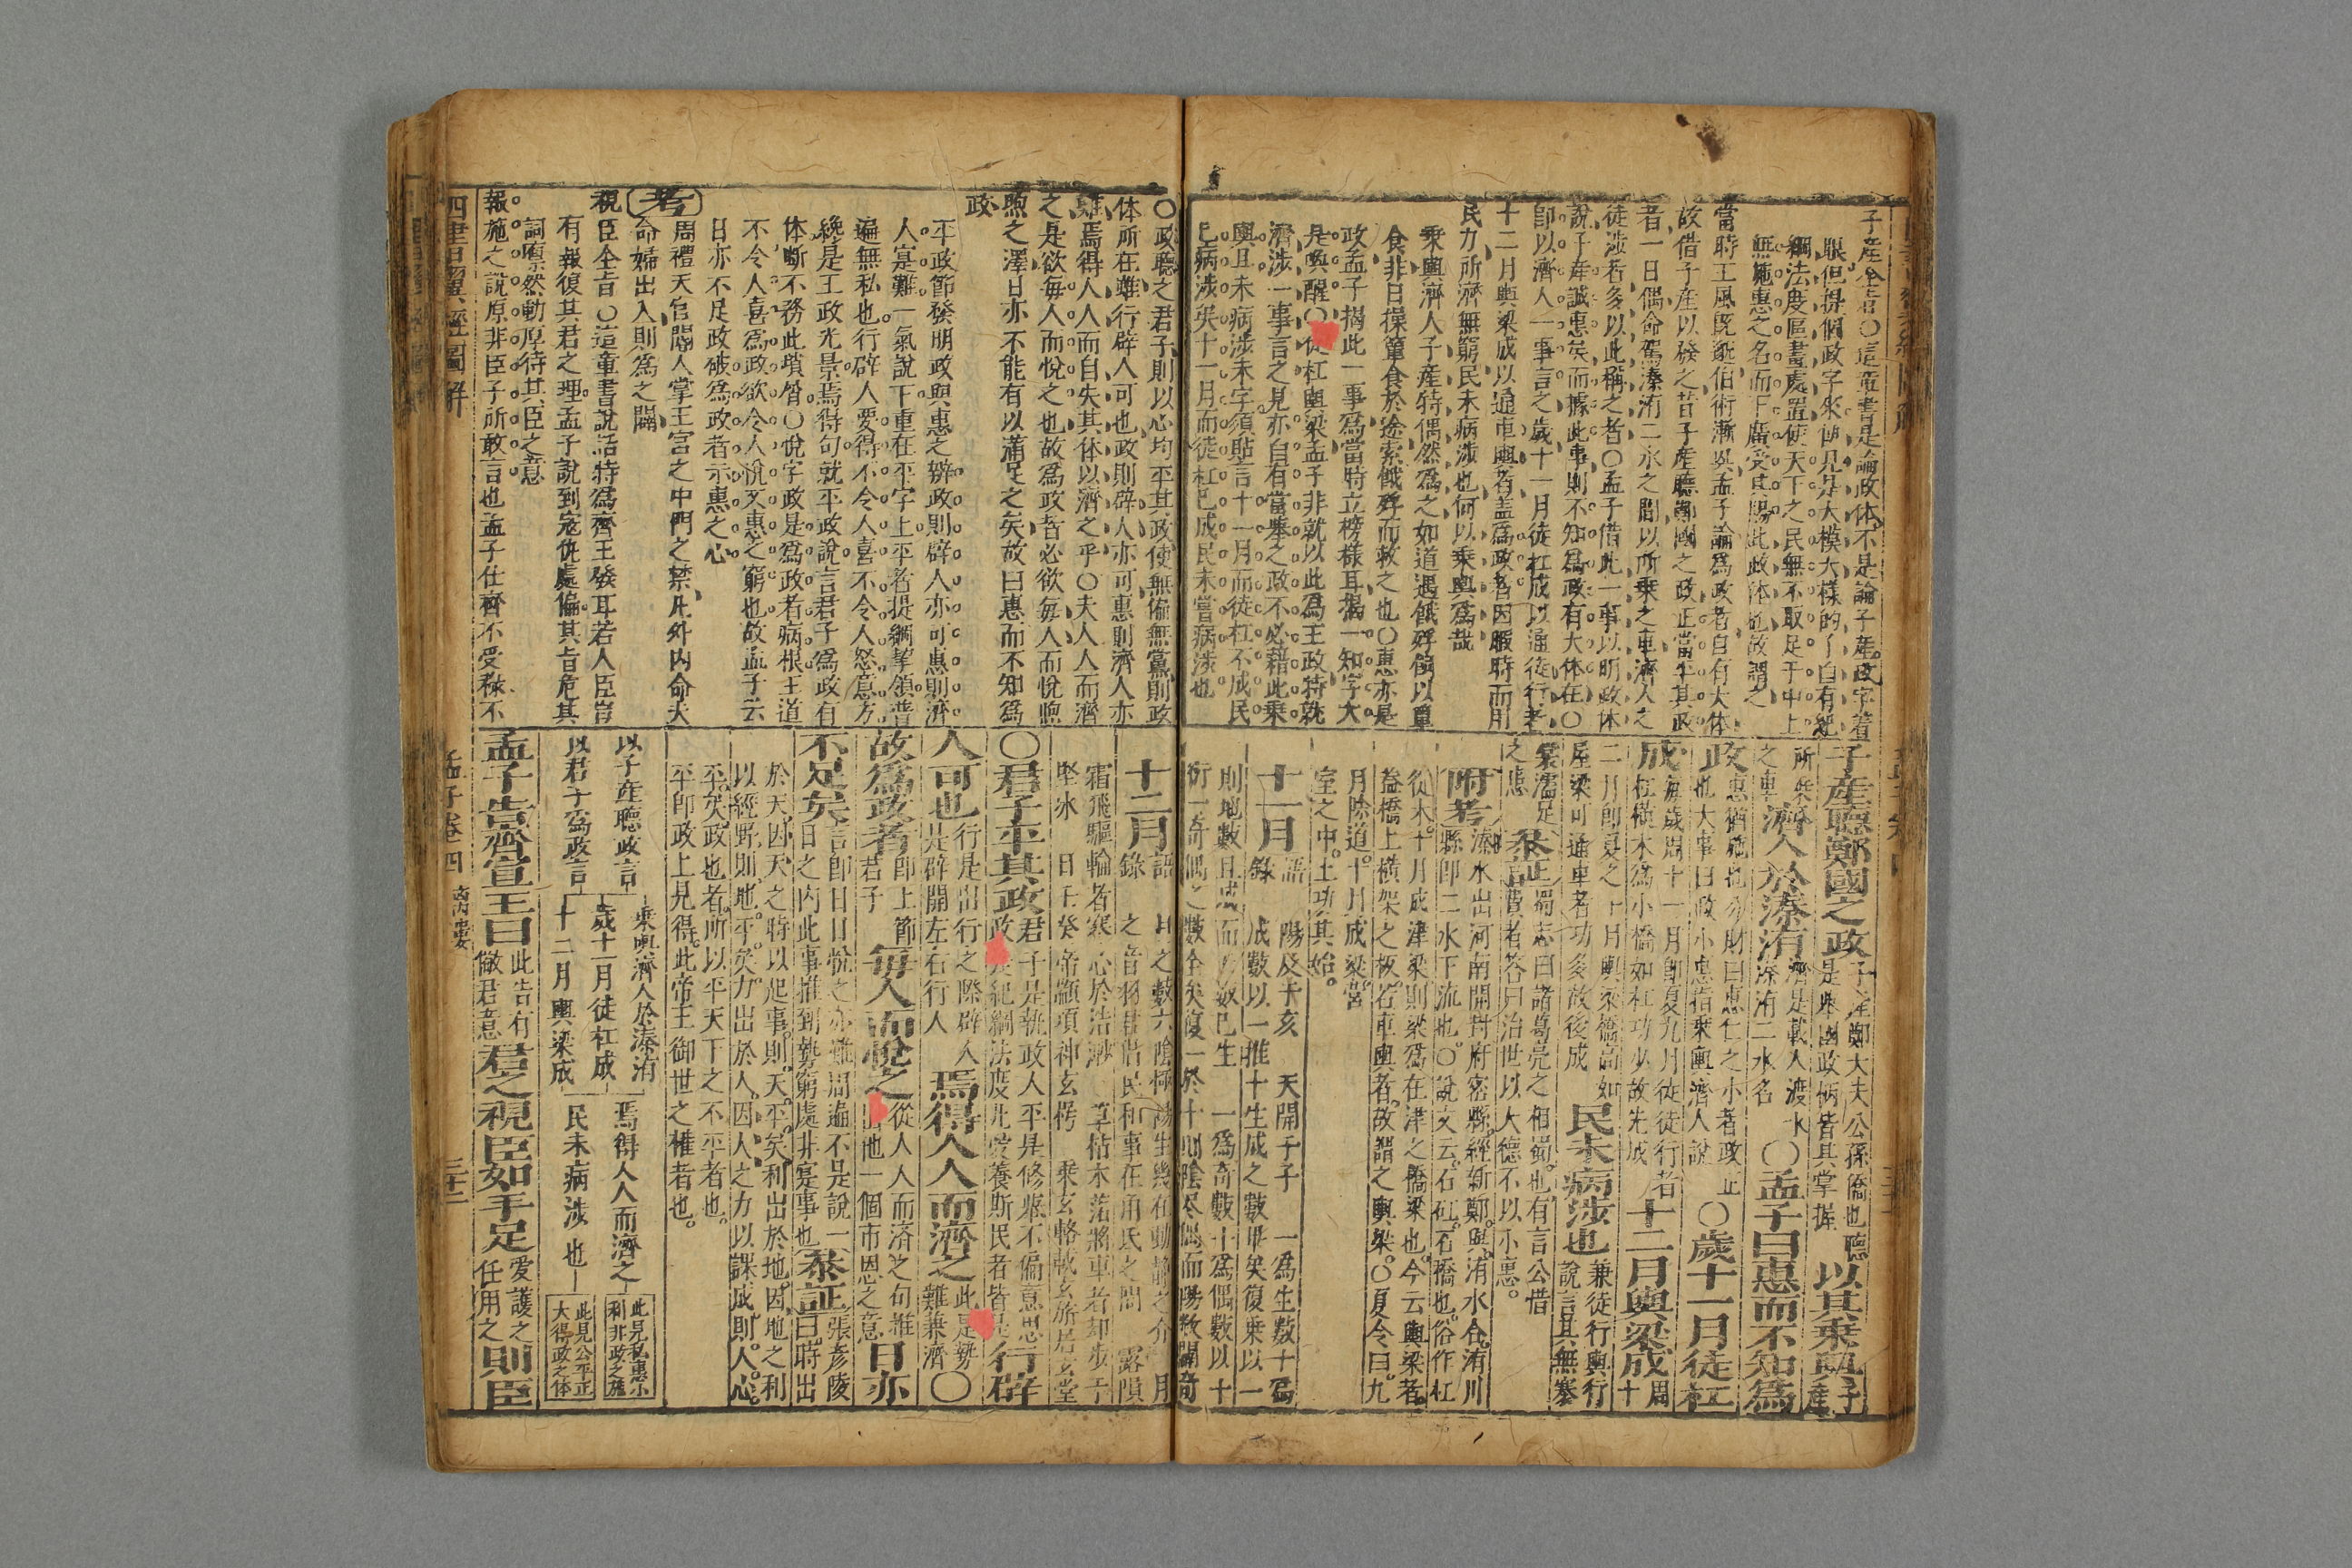 子產全旨〇這章書是論政体不是論子產政字著
眼但提個政字來便見是大模大樣的了自有紀
綱法度區畫處置使天下之民無不取足于中上
無施惠之名而下廣受其賜此政体也故謂之
當時王風既邈伯術漸興孟子論為政者自有大体
故借子產以發之昔子產聽鄭國之政正當平其政
者一日偶命駕溱洧二水之間以所乘之車濟人之
徒涉者多以此稱之者〇孟子借此一事以明政体
說子產誠惠矣而據此事則不知為政有大体在〇
即以濟人一事言之歲十一月徒杠成以通徒行者
十二月輿梁成以通車輿者盖為政者因暇時而用
民力所濟無窮民未病涉也何以乘輿為哉
乘輿濟人子產特偶然為之如道遇餓殍偶以簞
食非日操簞食於途索餓殍而救之也〇惠亦是
政孟子揭此一事為當時立榜樣耳揭一知字大
是喚醒〇徒杠輿梁孟子非就以此為王政特就
濟涉一事言之見亦自有當舉之政不必藉此乘
輿且未病涉未字須貼言十一月而徒杠不成民
已病涉矣十一月而徒杠已成民未嘗病涉也
子產聽鄭國之政子產鄭大夫公孫僑也聽是舉國政柄皆其掌握以其乘輿子產
所乘之車濟人於溱洧濟是載人渡水溱洧二水名〇孟子曰惠而不知為
政惠猶施也分財曰惠仁之小者政正也大事曰政小惠指乘輿濟人說〇歲十一月徒杠
成每歲周十一月即夏九月徒徒行者杠橫木為小橋如杠功少故先成十二月輿梁成周十
二月即夏之十月輿梁橋高如屋梁可通車者功多故後成民未病涉也兼徒行輿行說言其無褰
裳濡足之患 叅証蜀志曰諸葛亮之相蜀也有言公惜赦者答曰治世以大德不以小惠
附考溱水出河南開封府密縣經新鄭與洧水合洧川縣即二水下流也〇說文云石矼石橋也俗作杠
從木十月成津梁則梁為在津之橋梁也今云輿梁者
蓋橋上橫架之板若車輿者故謂之輿梁〇夏令曰九
月除道十月成梁營
室之中土功其始
十一月語錄 陽及于亥 天開于子 一為生數十為
成數以一推十生成之數畢矣復乘以一
則地數且成而天數已生 一為奇數十為偶數以十
衍一奇偶之數全矣復一於十則陰盡偶而陽數開奇
〇政聽之君子則以心均平其政使無偏無黨則政
体所在雖行辟人可也政則辟人亦可惠則濟人亦
難焉得人人而自失其体以濟之乎〇夫人人而濟
之是欲每人而悅之也故為政者必欲每人而悅喣
喣之澤日亦不能有以滿足之矣故曰惠而不知為
政
平政節發明政與惠之辨政則辟人亦可惠則濟
人寔難一氣說下重在平字上平者提綱挈領普
遍無私也行辟人要得不令人喜不令人怒意方
纔是王政光景焉得句就平政說言君子為政有
体斷不務此瑣屑〇悅字政是為政者病根王道
不令人喜為政欲令人悅又惠之窮也故孟子云
日亦不足政破為政者示惠之心
考
周禮天官閽人掌王宮之中門之禁凡外內命夫
命婦出入則為之闢
視臣全旨〇這章書說話特為齊王發耳若人臣豈
有報復其君之理孟子說到寇仇處偏其旨危其
詞凜然動厚待其臣之意
報施之說原非臣子所敢言也孟子仕齊不受祿不
十二月語錄 月之數六陰極陽生幾在動靜之介 月之音羽君惜民和事在角氐之間 露隕
霜飛驅輪者寒心於沽渺 草枯木落將車者却步于
堅氷 日壬癸帝顓頊神玄㝠 乘玄輅載玄旂居玄堂
〇君子平其政君子是執政人平是修舉不偏意思政是紀綱法度凡愛養斯民者皆是行辟
人可也行是出行之際辟人是辟開左右行人焉得人人而濟之此是勢難兼濟〇
故為政者即上節君子每人而悅之從人人而済之句推出他一個市恩之意日亦
不足矣言即日日悅之亦難周遍不是說一日之內此事推到勢窮處非寔事也叅証張彥陵曰時出
於天因天之時以起事則天平矣利出於地因地之利
以經野則地平矣力出於人因人之力以課成則人心
平矣政也者所以平天下之不平者也
平即政上見得此帝王御世之權者也
以子產聽政言 乘輿濟人於溱洧 焉得人人而濟之 此見私惠小利非政之施
歲十一月徒杠成
以君子為政言 十二月輿梁成 民未病涉也 此見公平正大得政之体
孟子告齊宣王曰此告有儆君意君之視臣如手足愛護之任用之則臣
四書翼經圖解 孟子卷四 離婁 三十二